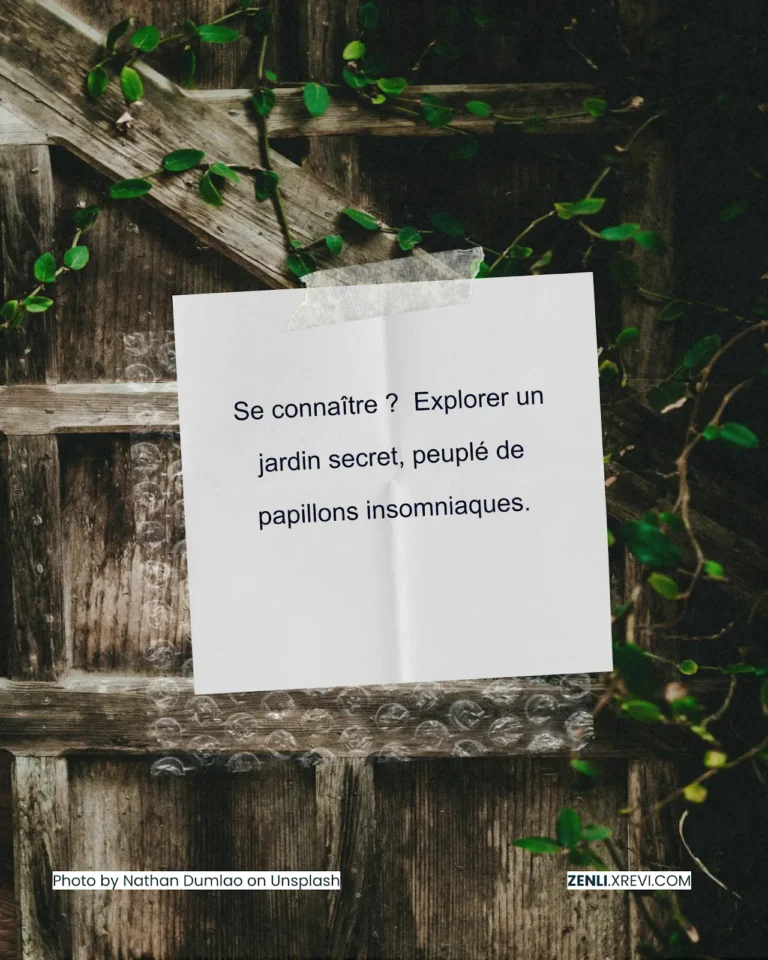 Se connaître ?  Explorer un
jardin secret, peuplé de
papillons insomniaques.
Photo by Nathan Dumlao on Unsplash
ZENLI.XREVI.COM